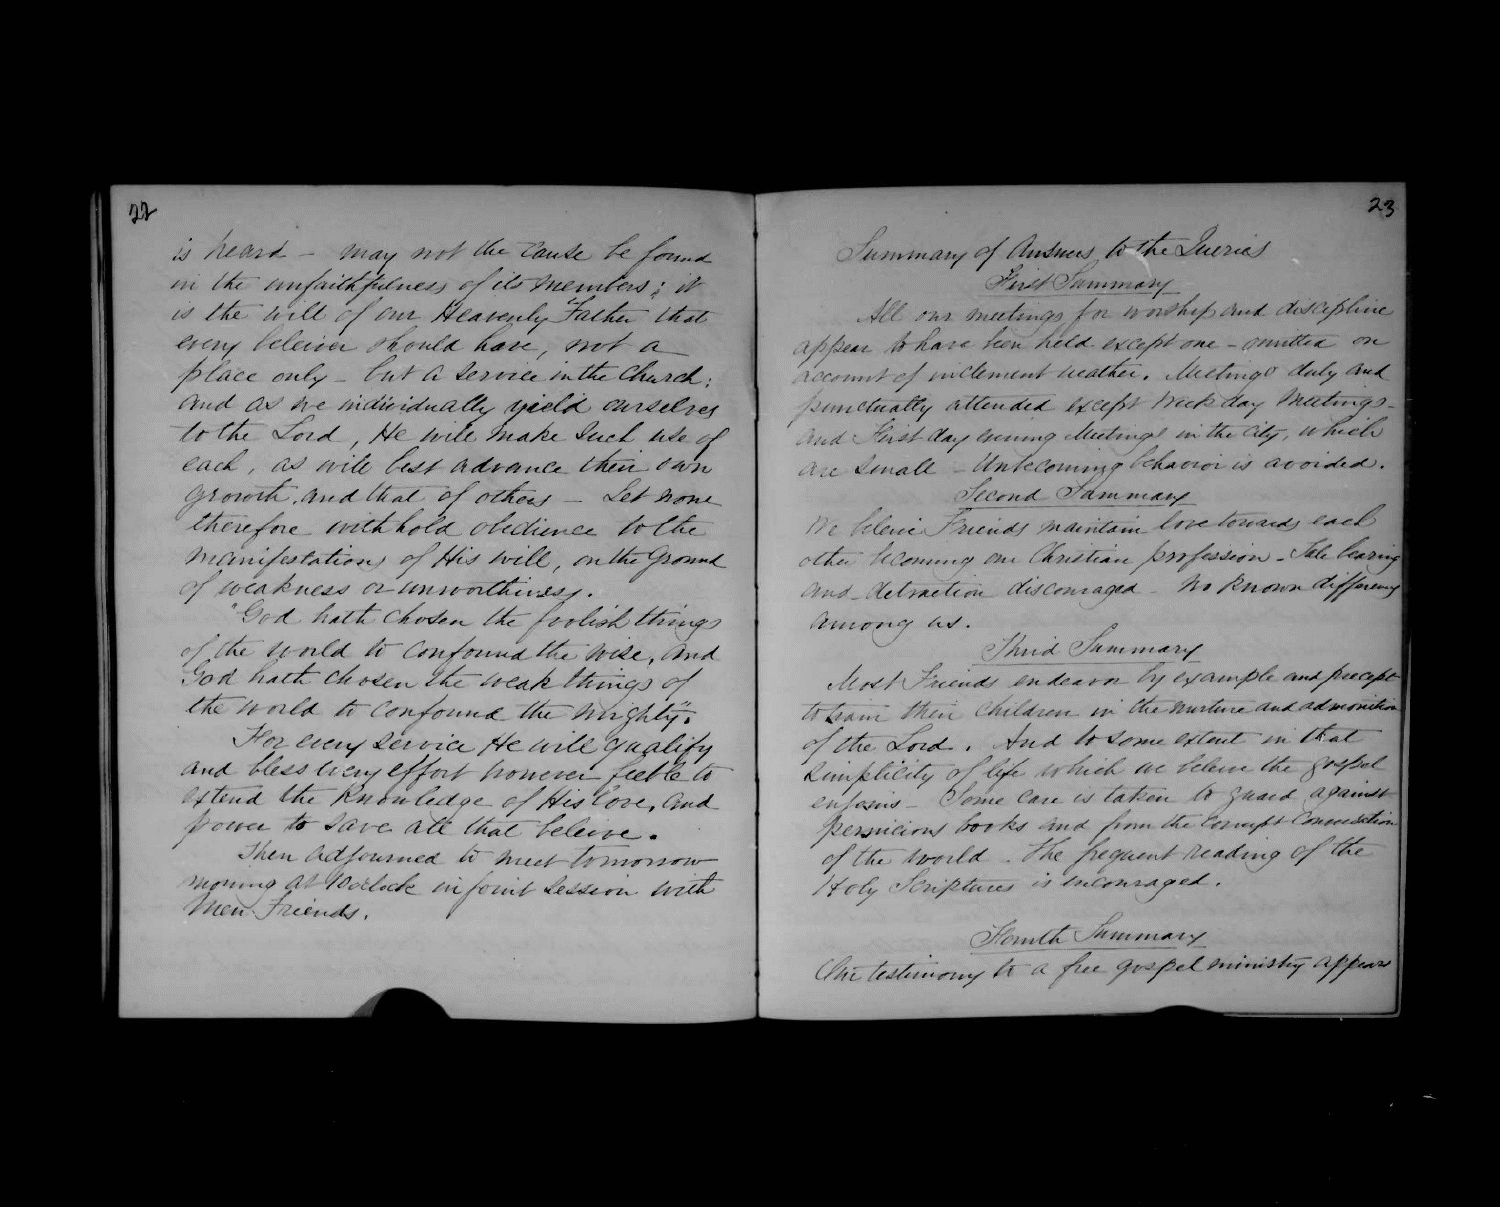 22
is heard - may not the cause be found
in the unfaithfulness of its members; it
is the will of our Heavenly Father that
every beleiver should have, not a
place only - but a service in the Church;
and as we individually yield ourselves
to the Lord, He will make such use of
each, as will best advance their own
growth, and that of others - Let none
therefore withhold obedience to the
manifestations of His will, on the ground
of weakness or unworthiness.
"God hath chosen the foolish things
of the world to confound the wise, and
God hath chosen the weak things of
the world to confound the mighty".
For every service He will qualify
and bless every effort however feeble to
extend the knowledge of His love, and
power to save all that beleive.
Then adjourned to meet tomorrow
morning at 10 oclock in joint session with
Men Friends.
23
Summary of Answers to the Queries
First Summary
All our meetings for worship and discipline
appear to have been held except one - omitted on
account of inclement weather. Meetings duly and
punctually attended except Week day Meetings -
and First day evening Meetings in the city, which
are small - Unbecoming behavior is avoided.
Second Summary
We beleive Friends maintain love towards each
other becoming our Christian profession - Tale bearing
and detraction discouraged - No known differences
among us.
Third Summary
Most Friends endeavor by example and precept
to train their children in the nurture and admonition
of the Lord. And to some extent in that
simplicity of life which we beleive the gospel
enjoins - Some care is taken to guard against
pernicious books and from the corrupt conversation
of the world. The frequent reading of the
Holy Scriptures is encouraged.
Fourth Summary
Our testimony to a free gospel ministry appears